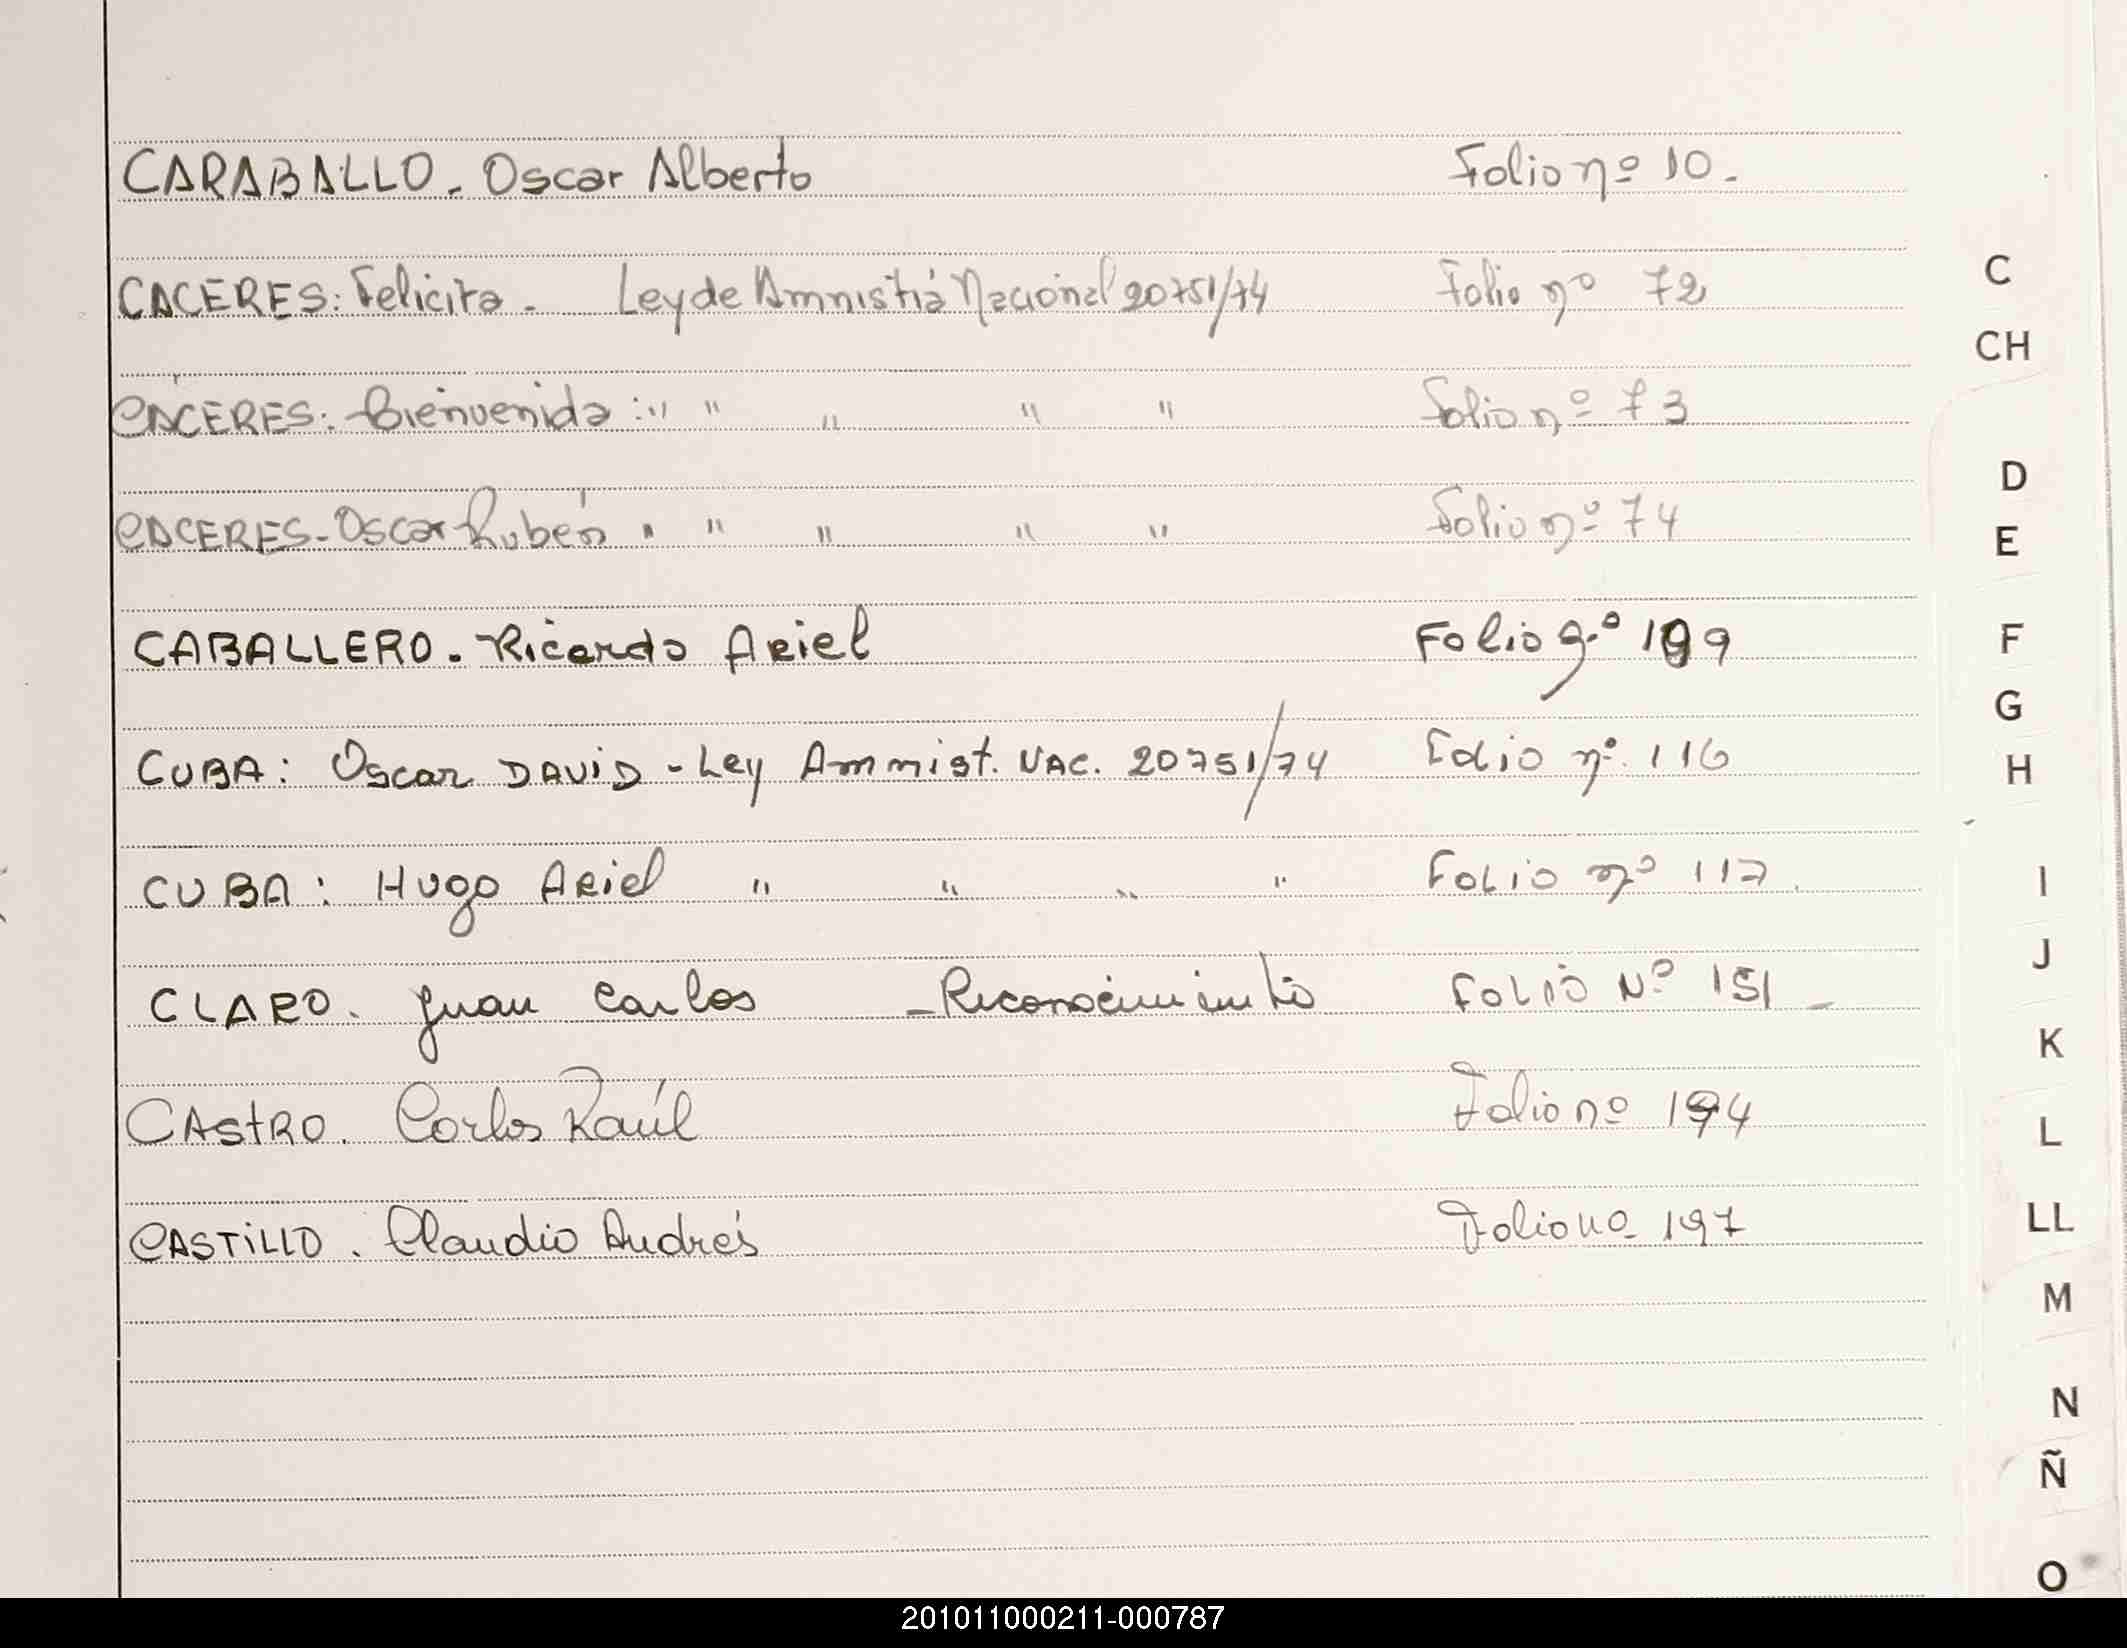 CARABALLO. Oscar Alberto Folio nº 10.
CACERES: Felicita. Ley de Amnistiá Nacional 20751/74 Folio nº 72
CACERES: Bienvenida: " " " " " Folio nº 73
CACERES-Oscar Rubén " " " " " Folio nº 74
CABALLERO. Ricardo Ariel Folio nº 199
CUBA: Oscar DAVID - Ley Ammist. NAC. 20751/74 Folio nº. 116
CUBA: Hugo Ariel " " " " Folio nº 117.
CLARO. Juan Carlos - Reconocimiento FOLIO Nº 151 -
CASTRO. Carlos Raúl Folio nº 194
CASTILLO. Claudio Andrés Folio nº 197
C
CH
D
E
F
G
H
I
J
K
L
LL
M
N
Ñ
O
201011000211-000787